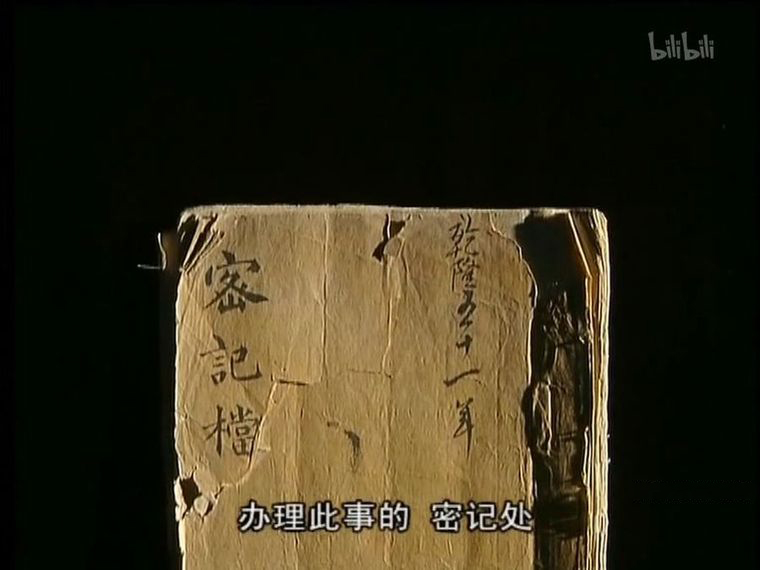 bilibili
乾隆五十一年
密記檔
办理此事的 密记处